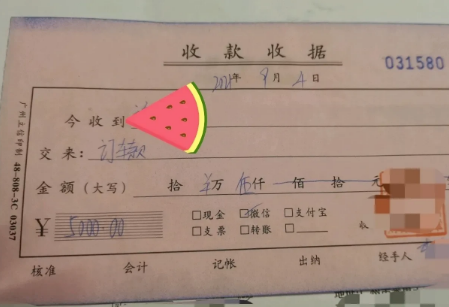 收款收据
031580
2021年9月4日
今收到
交来：订车款
金额（大写） 拾 万 伍仟 佰 拾 元
¥ 5000.00 □现金 □微信 □支付宝
□支票 □转账 □
核准 会计 记帐 出纳 经手人
广州文信印制 48-808-3C 03037